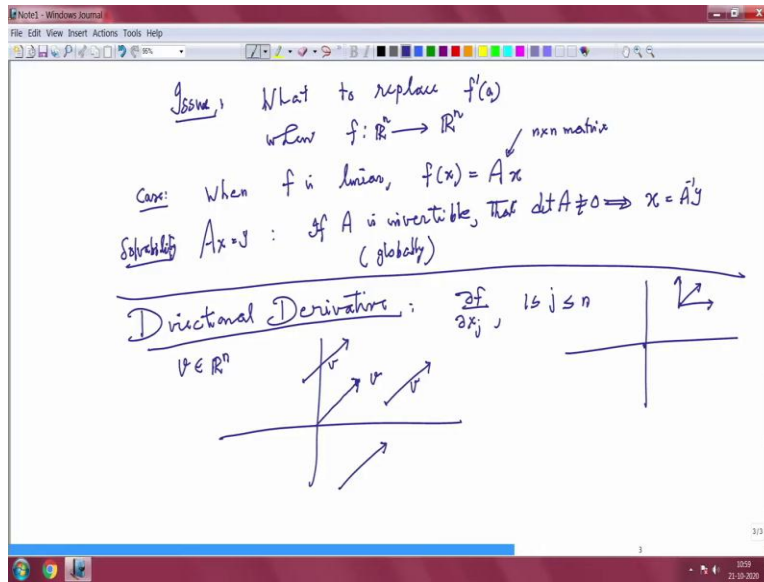 Note1 - Windows Journal
File Edit View Insert Actions Tools Help
Issue: What to replace f'(a)
when f: ℝⁿ → ℝⁿ
n×n matrix
Case: When f is linear, f(x) = A x
Solvability Ax=y : If A is invertible, that det A ≠ 0 ⟹ x = A⁻¹y
(globally)
Directional Derivative: ∂f/∂x_j, 1 ≤ j ≤ n
v ∈ ℝⁿ
v
v
v
3/3
3
10:59
21-10-2020